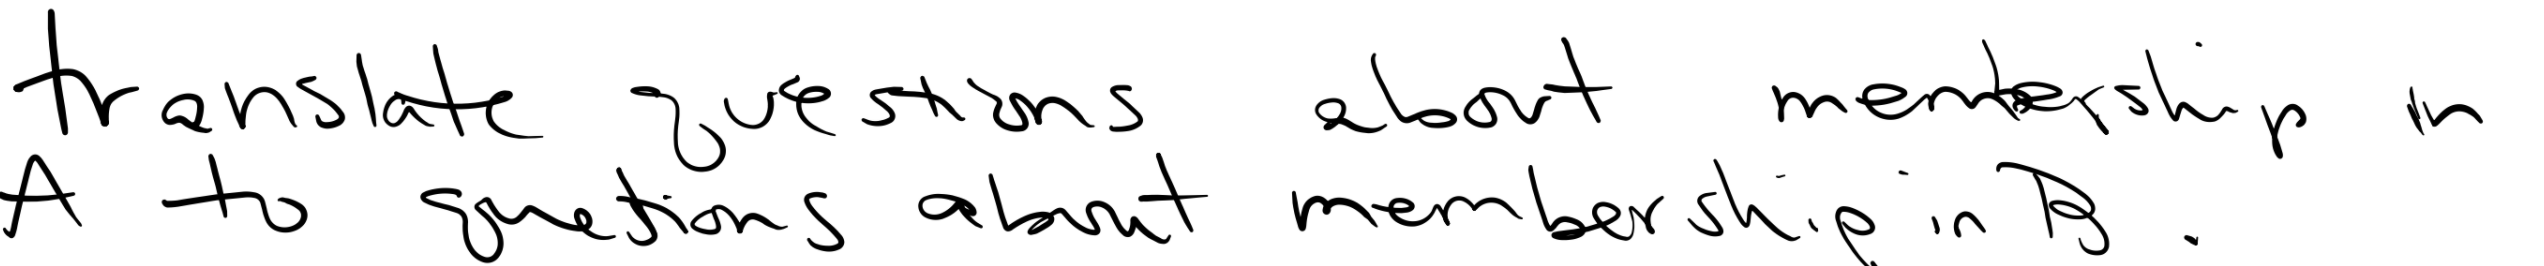 translate questions about membership in
A to questions about membership in B.